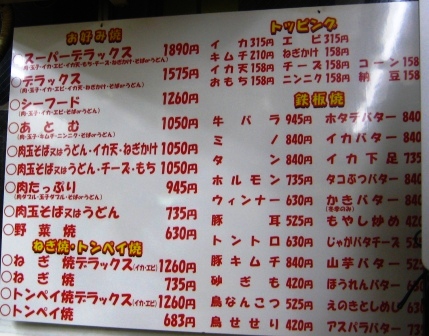 お好み焼
○スーパーデラックス 1890円
(肉・玉子・イカ・エビ・イカ天・もち・チーズ・ねぎかけ・そばorうどん)
○デラックス 1575円
(肉・玉子・イカ・エビ・イカ天・ねぎかけ・そばorうどん)
○シーフード 1260円
○あとむ 1050円
(肉・玉子・キムチ・ニンニク・そばorうどん)
○肉玉そば又はうどん・イカ天・ねぎかけ 1050円
○肉玉そば又はうどん・チーズ・もち 1050円
○肉たっぷり 945円
(肉ダブル・玉子ダブル・そばorうどん)
○肉玉そば又はうどん 735円
○野菜焼 630円
ねぎ焼・トンペイ焼
○ねぎ焼デラックス(イカ・エビ) 1260円
○ねぎ焼 735円
○トンペイ焼デラックス(イカ・エビ) 1260円
○トンペイ焼 683円
トッピング
イカ 315円 エビ 315円
キムチ 210円 ねぎかけ 158円
イカ天 158円 チーズ 158円 コーン 158円
おもち 158円 ニンニク 158円 納豆 158
鉄板焼
牛バラ 945円 ホタテバター 840
ミノ 840円 イカバター 840
タン 840円 イカ下足 735
ホルモン 735円 タコぶつバター 840
ウィンナー 630円 かきバター 840
(冬季のみ)
豚耳 525円 もやし炒め 420
トントロ 630円 じゃがバタチーズ 525
豚キムチ 840円 山芋バター 525
砂ぎも 420円 ほうれんバター 630
鳥なんこつ 525円 えのきとしめじ 630
鳥せせり 420円 アスパラバター 735